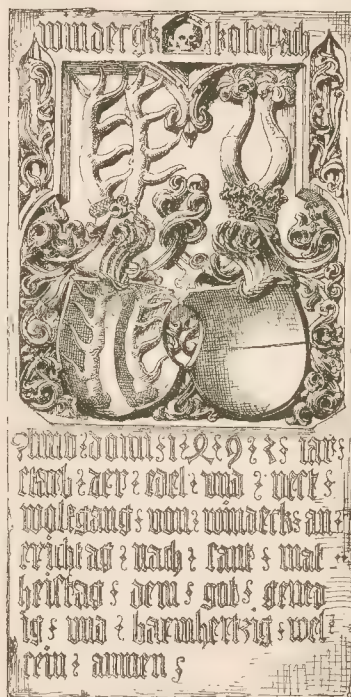 windergk kolnpach
Anno domi 1 8 9 z iar
starb der edel und vest
wolfgang von windeck an
erichtag nach sant mat
heistag dem gob gened
ig und barmhertzig wel
sein ammen